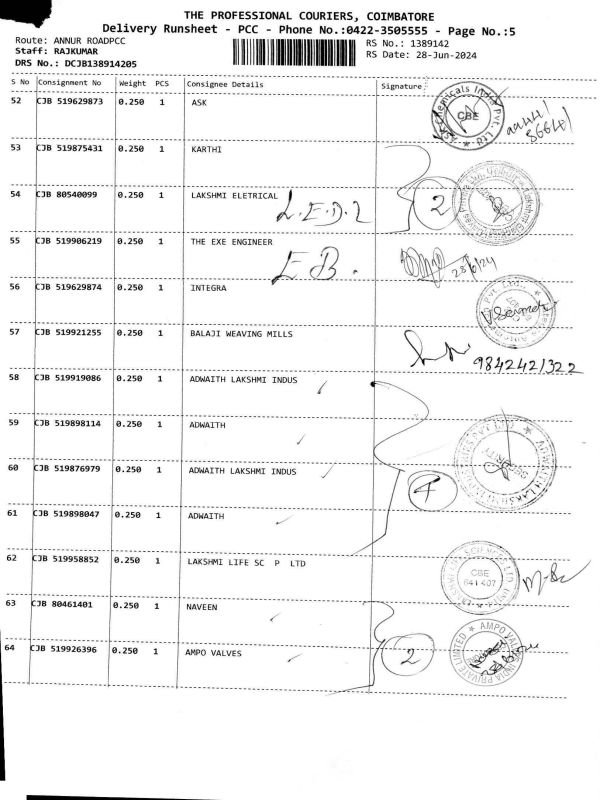 THE PROFESSIONAL COURIERS, COIMBATORE
Delivery Runsheet - PCC - Phone No.:0422-3505555 - Page No.:5
Route: ANNUR ROADPCC
Staff: RAJKUMAR
DRS No.: DCJB138914205
RS No.: 1389142
RS Date: 28-Jun-2024
S No Consignment No Weight PCS Consignee Details Signature
52 CJB 519629873 0.250 1 ASK
CBE
53 CJB 519875431 0.250 1 KARTHI
54 CJB 80540099 0.250 1 LAKSHMI ELETRICAL L.E.D.L 2
55 CJB 519906219 0.250 1 THE EXE ENGINEER E B. 28/6/24
56 CJB 519629874 0.250 1 INTEGRA
57 CJB 519921255 0.250 1 BALAJI WEAVING MILLS
9842421322
58 CJB 519919086 0.250 1 ADWAITH LAKSHMI INDUS
59 CJB 519898114 0.250 1 ADWAITH
60 CJB 519876979 0.250 1 ADWAITH LAKSHMI INDUS 4
SECURITY
61 CJB 519898047 0.250 1 ADWAITH
62 CJB 519958852 0.250 1 LAKSHMI LIFE SC P LTD
CBE
641 407
63 CJB 80461401 0.250 1 NAVEEN
64 CJB 519926396 0.250 1 AMPO VALVES 2
AMPO VALVES INDIA PRIVATE LIMITED